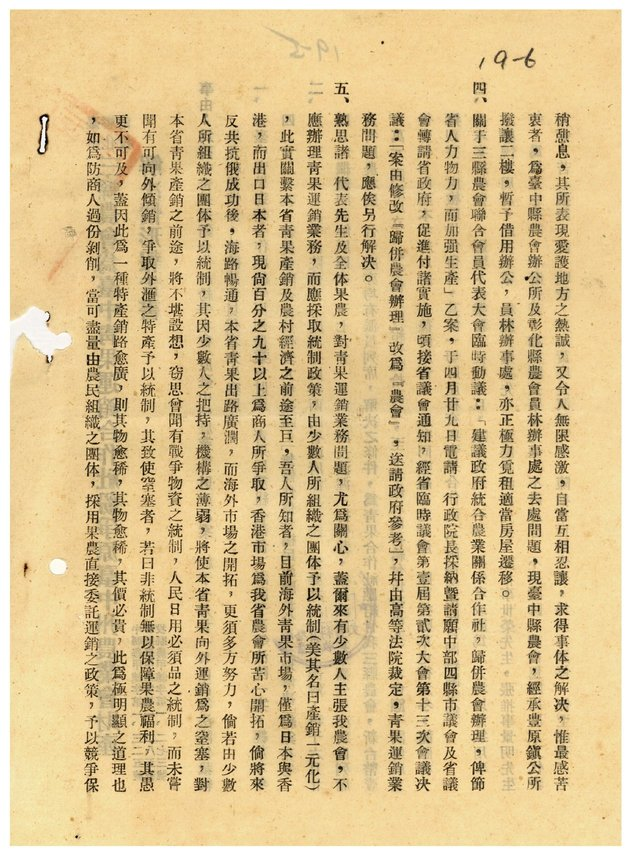 19-6
稍憩息,其所表現愛護地方之熱誠,又令人無限感激,自當互相忍讓,求得事体之解决,惟最感苦
衷者,爲臺中縣農會辦公所及彰化縣農會員林辦事處之去處問題,現臺中縣農會,經承豊原鎭公所
撥讓二樓,暫予借用辦公,員林辦事處,亦正極力覓租適當房屋遷移。
四、關于三縣農會聯合會員代表大會臨時動議:「建議政府統合農業關係合作社,歸併農會辦理,俾節
省人力物力,而加强生產」乙案,于四月廿九日電請 行政院長採納曁請願中部四縣市議會及省議
會轉請省政府,促進付諸實施,頃接省議會通知,經省臨時議會第壹屆第貳次大會第十三次會議决
議:「案由修改「歸併農會辦理」改爲「農會」,送請政府參考」,幷由高等法院裁定,青果運銷業
務問題,應俟另行解决。
五、熟思諸 代表先生及全体果農,對青果運銷業務問題,尤爲關心,蓋爾來有少數人主張我農會,不
應辦理青果運銷業務,而應採取統制政策,由少數人所組織之團体予以統制(美其名曰產銷一元化)
,此實關繫本省青果產銷及農村經濟之前途至巨,吾人所知者,目前海外青果市場,僅爲日本與香
港,而出口日本者,現尙百分之九十以上爲商人所爭取,香港市場爲我省農會所苦心開拓,倘將來
反共抗俄成功後,海路暢通,本省青果出路廣濶,而海外市場之開拓,更須多方努力,倘若由少數
人所組織之團体予以統制,其因少數人之把持,機構之薄弱,將使本省青果向外運銷爲之窒塞,對
本省青果產銷之前途,將不堪設想,窃思會聞有戰爭物資之統制,人民日用必須品之統制,而未嘗
聞有可向外傾銷,爭取外滙之特產予以統制,其致使窒塞者,若曰非統制無以保障果農福利,其愚
更不可及,蓋因此爲一種特產銷路愈廣,則其物愈稀,其物愈稀,其價必貴,此爲極明顯之道理也
,如爲防商人過份剝削,當可盡量由農民組織之團体,採用果農直接委託運銷之政策,予以競爭保